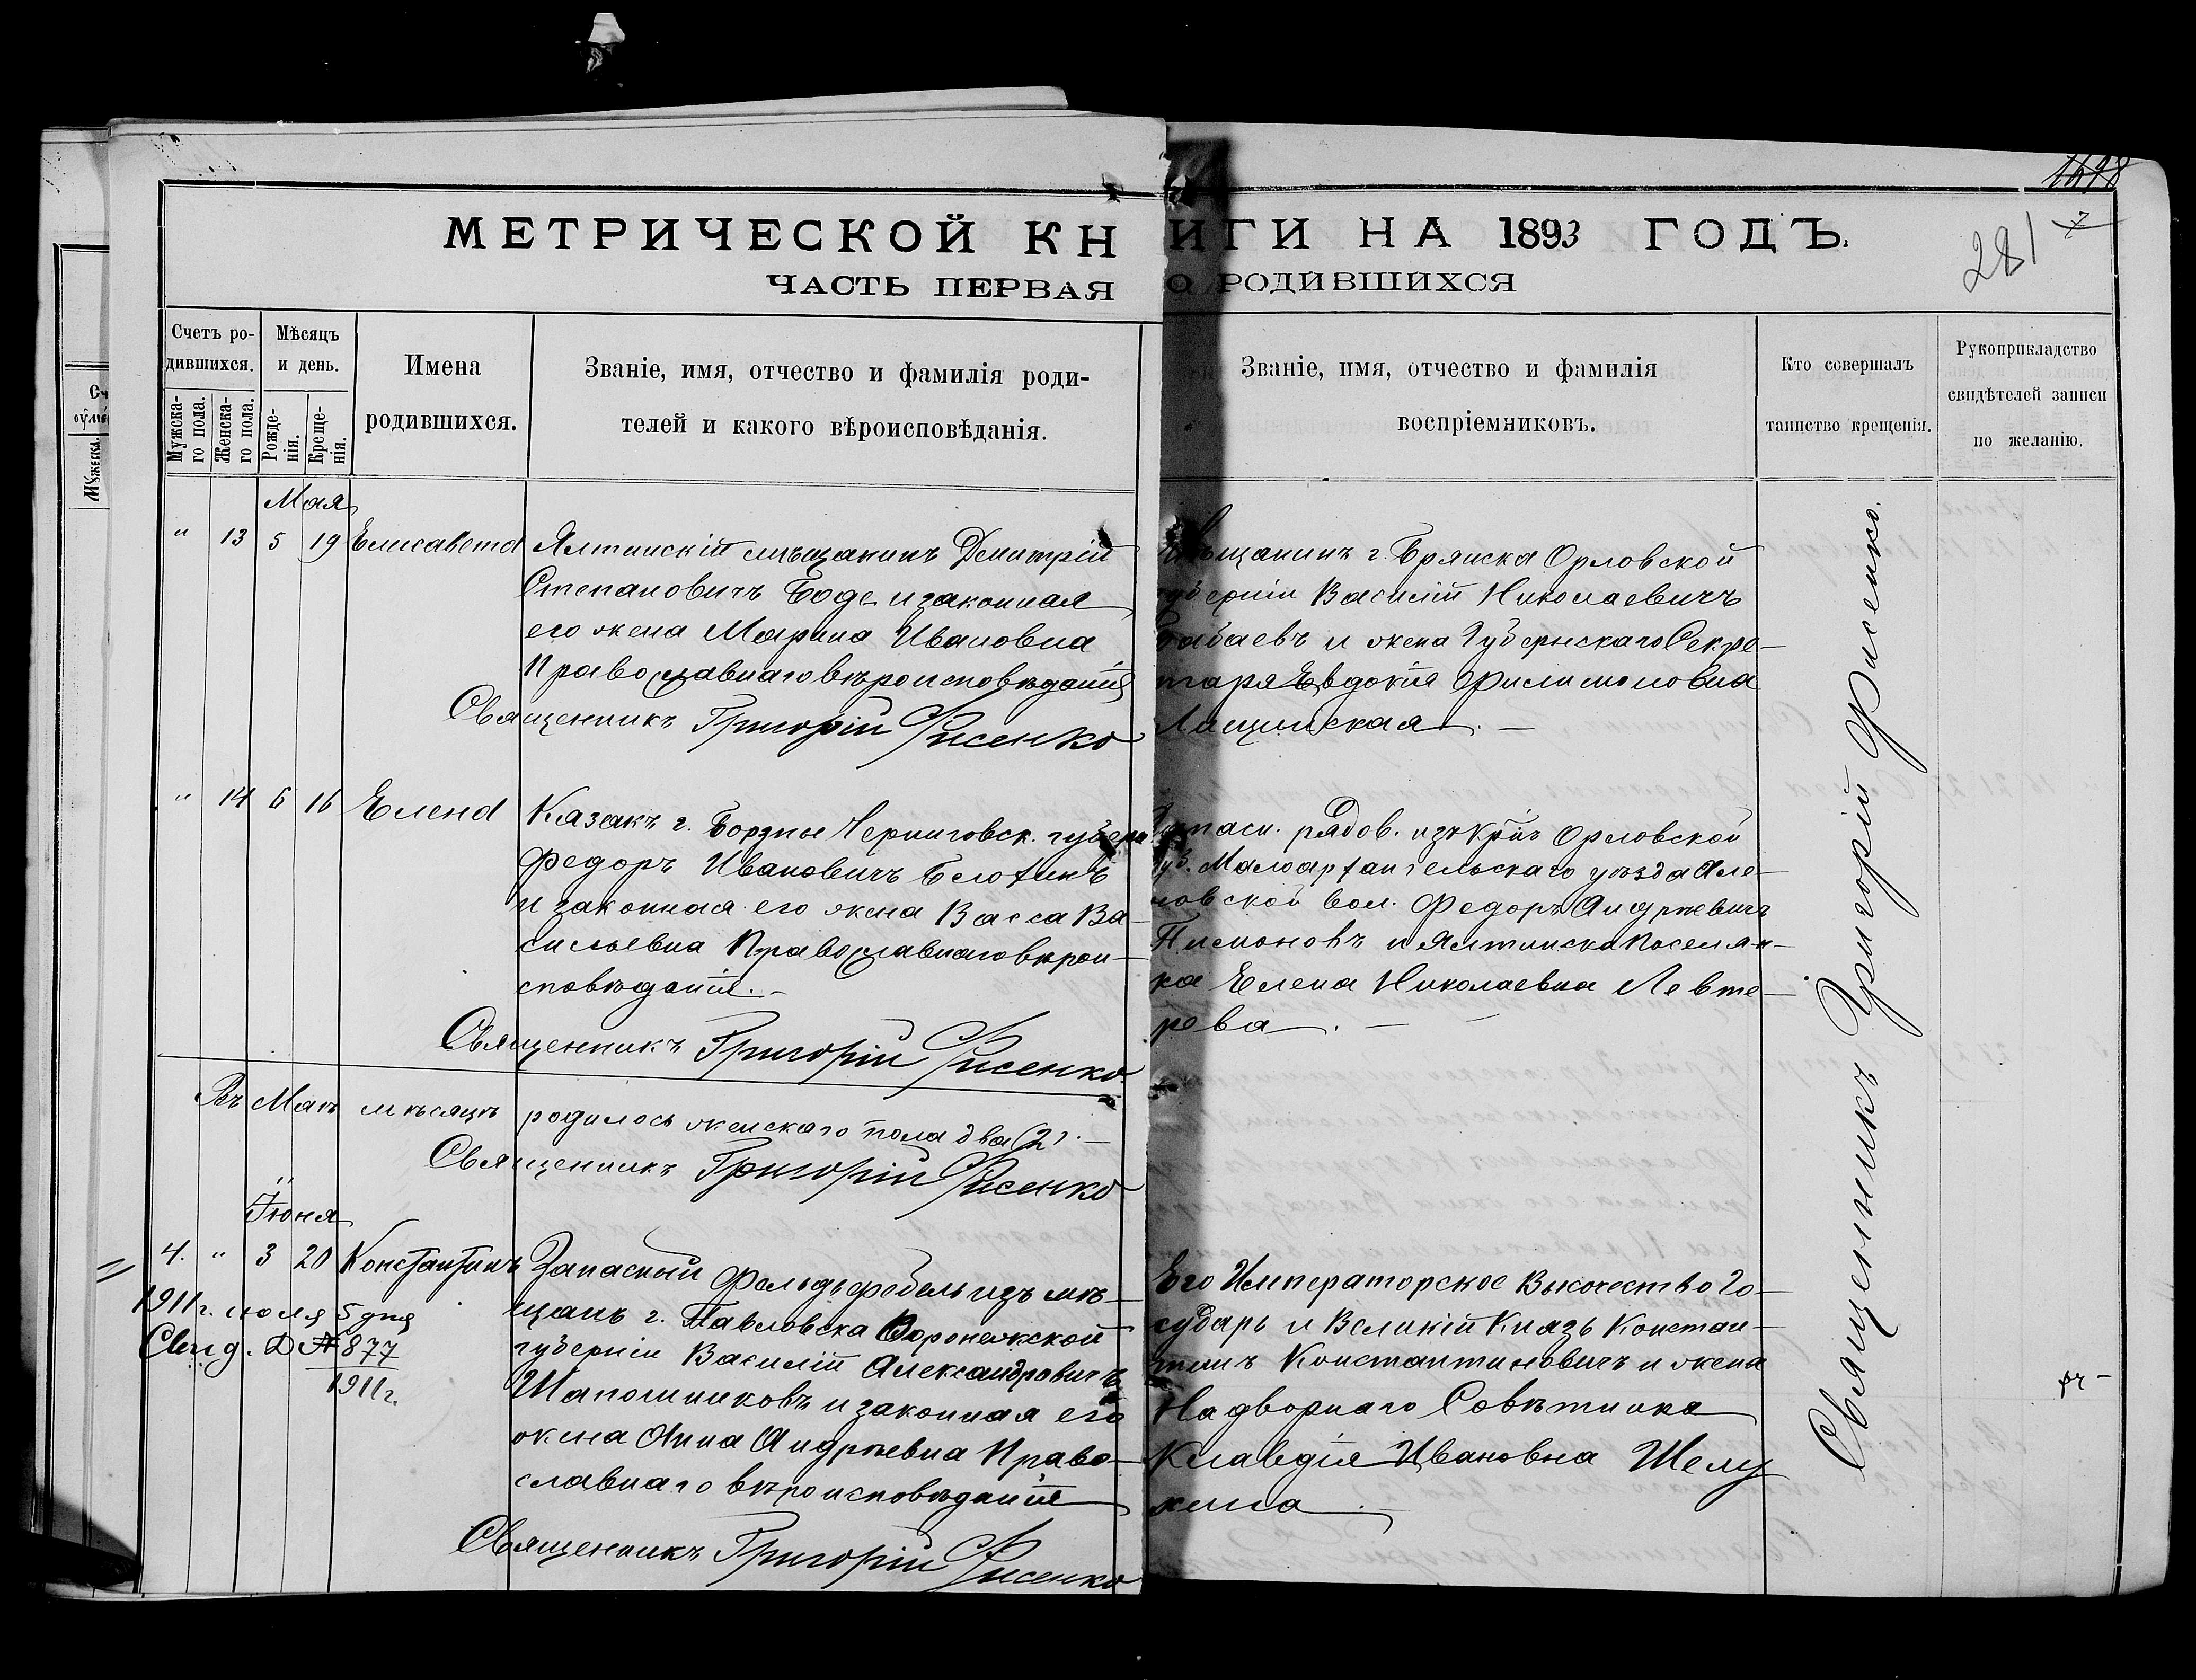 1698
281
7
МЕТРИЧЕСКОЙ КНИГИ НА 1893 ГОДЪ.
ЧАСТЬ ПЕРВАЯ О РОДИВШИХСЯ
Счетъ ро-
дившихся.
Мужска-
го пола.
Женска-
го пола.
Мѣсяцъ
и день.
Рожде-
нія.
Креще-
нія.
Имена
родившихся.
Званіе, имя, отчество и фамилія роди-
телей и какого вѣроисповѣданія.
Званіе, имя, отчество и фамилія
воспріемниковъ.
Кто совершалъ
таинство крещенія.
Рукоприкладство
свидѣтелей записи
по желанію.
Мая
" 13 5 19 Елисавета
Ялтинскій мѣщанинъ Димитрій
Степановичъ Боде и законная
его жена Марина Ивановна
Православнаго вѣроисповѣданія
Священникъ Григорій Фисенко
Мѣщанинъ г. Брянска Орловской
губерніи Василій Николаевичъ
и жена Губернскаго Секре-
таря Евдокія Филимоновна
Лащинская. —
" 14 6 16 Елена
Казакъ г. Борзны Черниговск. губерн.
Федоръ Ивановичъ
и законная его жена Васса Ва-
сильевна Православнаго вѣрои-
сповѣданія. —
Священникъ Григорій Фисенко
Запасн. рядов. изъ Кр. Орловской
Губ. Малоархангельскаго уѣзда
вол. Федоръ Андреевичъ
и Ялтинска поселян-
ка Елена Николаевна Левте-
рева. —
Въ Маѣ мѣсяцѣ родилось женскаго пола два (2). —
Священникъ Григорій Фисенко
Іюня
4. " 3 20 Константинъ
1911 г. июля 5 дня
Свид. Д № 877
1911 г.
Запасный Фельдфебель изъ мѣ-
щанъ г. Павловска Воронежской
губерніи Василій Александровичъ
Шапошниковъ и законная его
жена Анна Андреевна Право-
славнаго вѣроисповѣданія
Священникъ Григорій Фисенко
Его Императорское Высочество Го-
сударь и Великій Князь Констан-
тинъ Константиновичъ и жена
Надворнаго Совѣтника
Клавдія Ивановна Шелу
хина. —
Священникъ Григорій Фисенко.